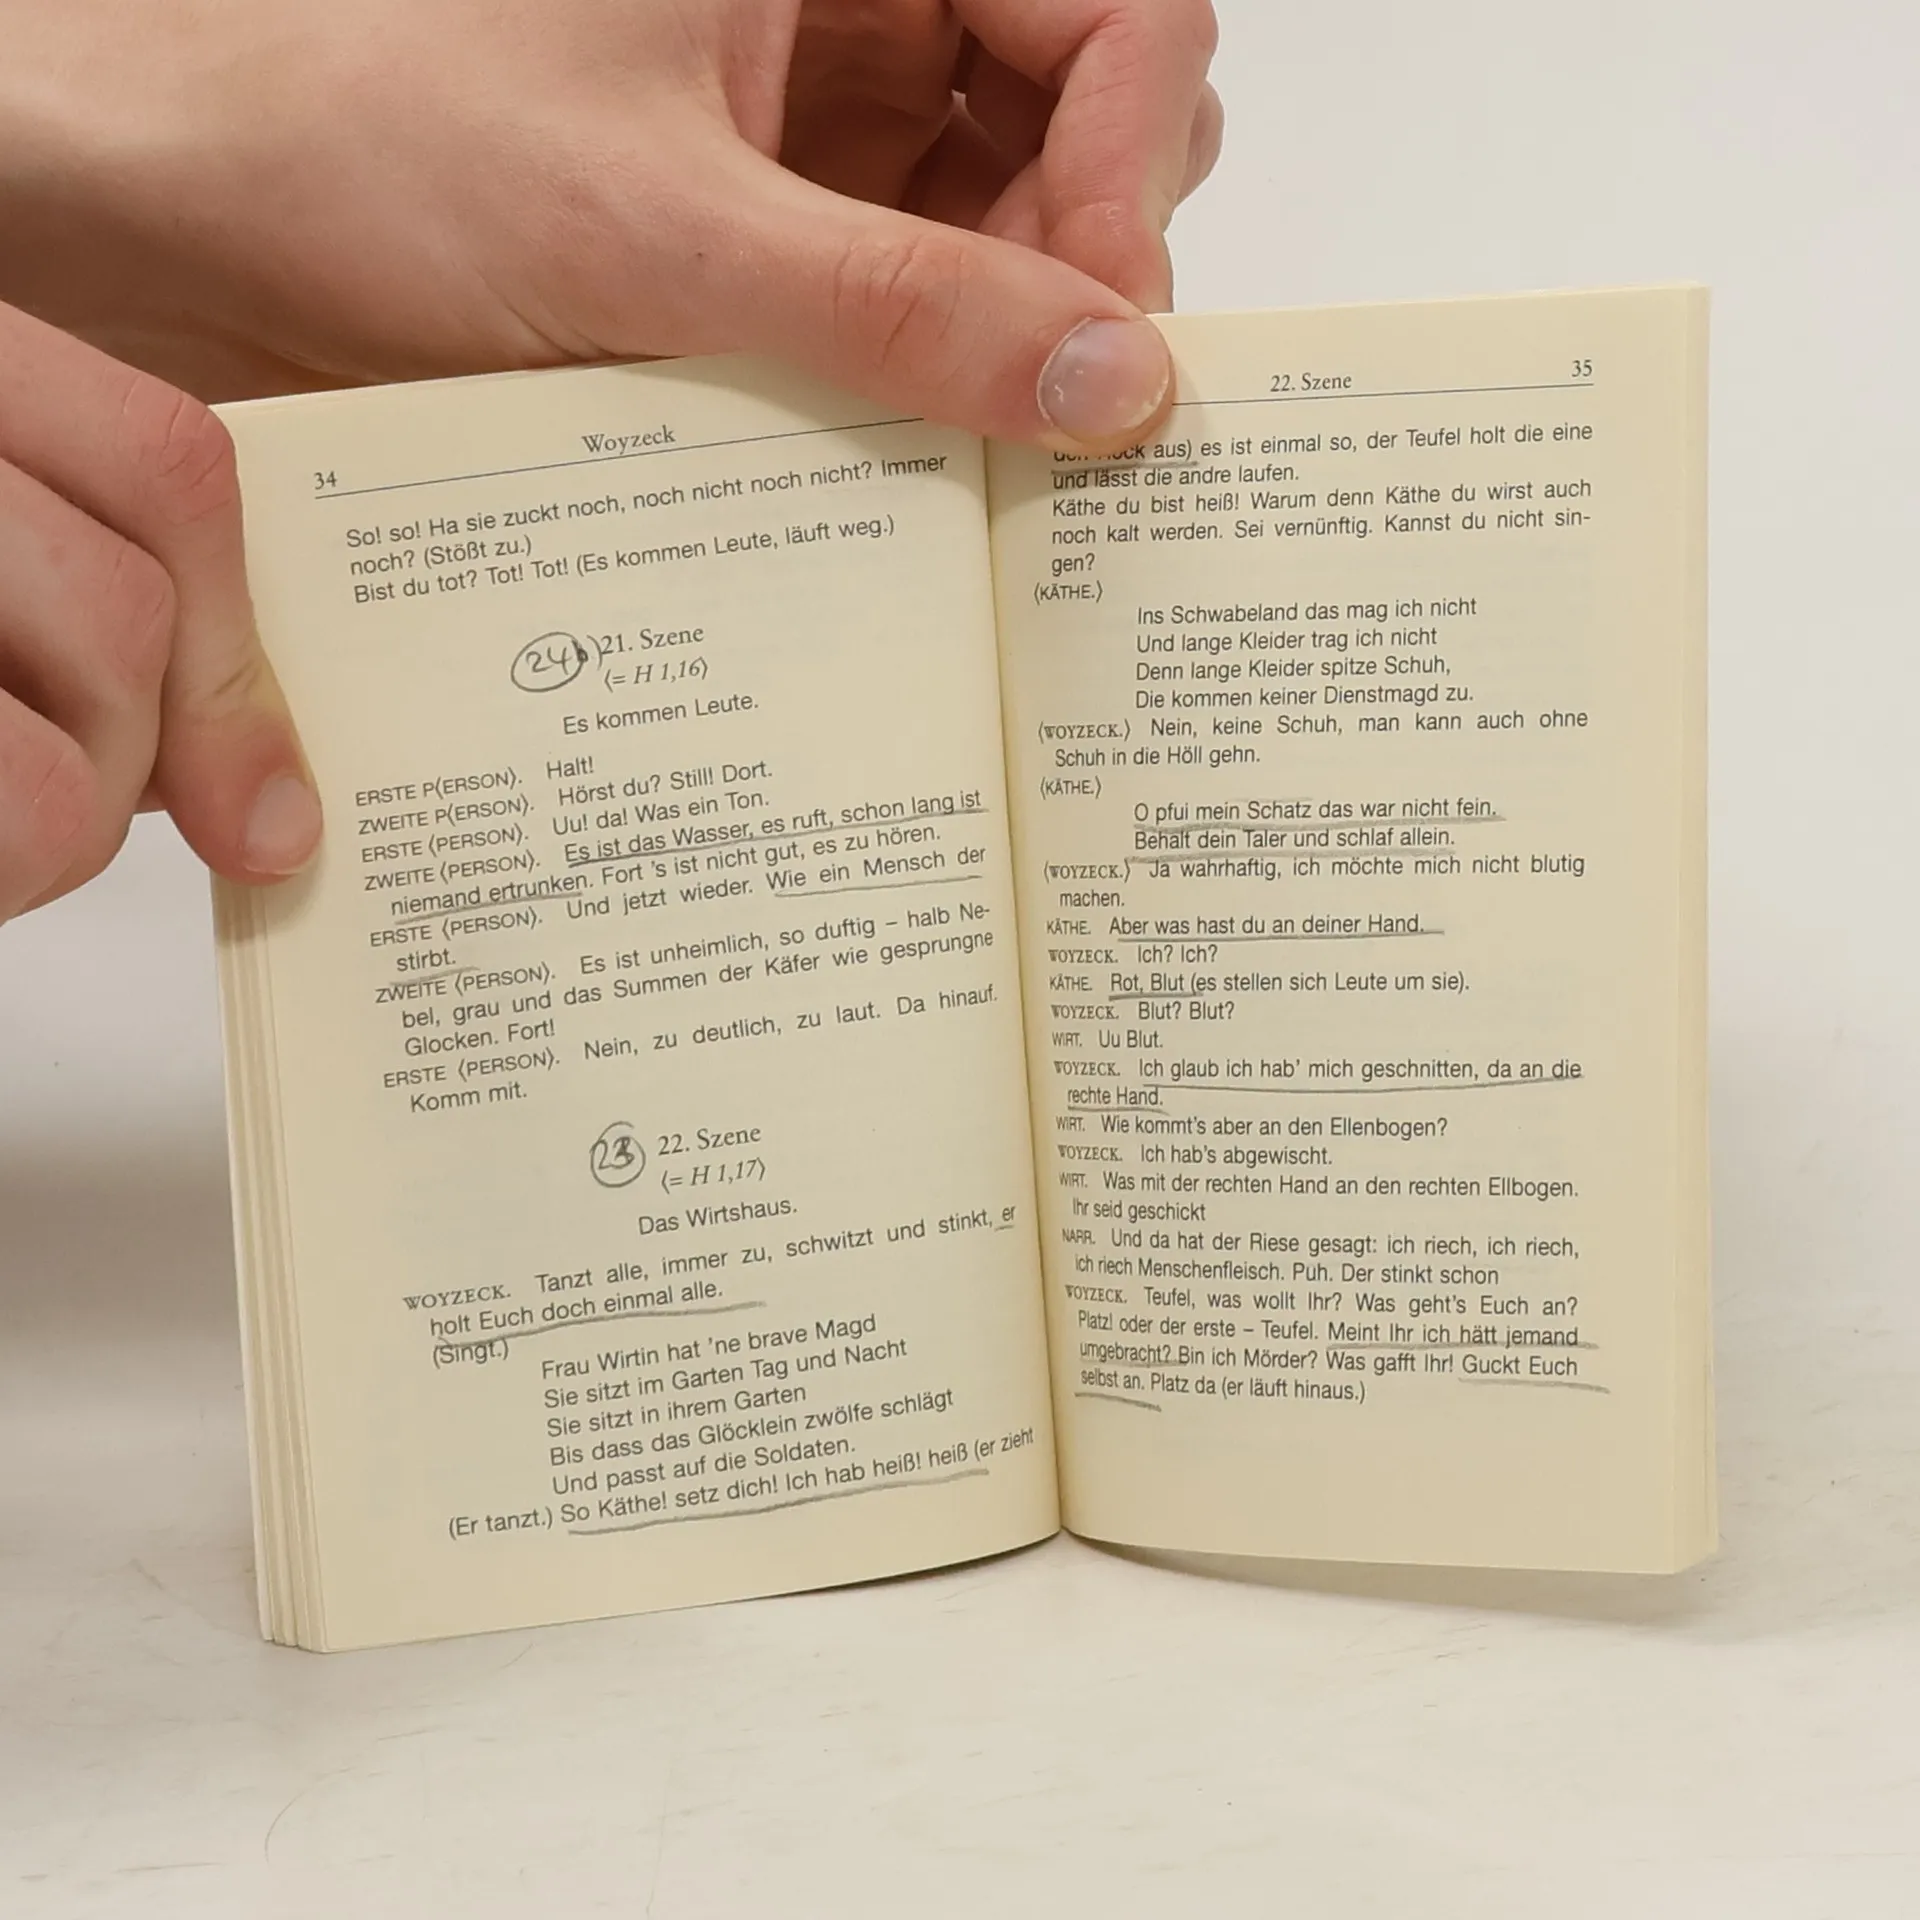 34
Woyzeck
So! so! Ha sie zuckt noch, noch nicht noch nicht? Immer
noch? (Stößt zu.)
Bist du tot? Tot! Tot! (Es kommen Leute, läuft weg.)
24b) 21. Szene
⟨= H 1,16⟩
Es kommen Leute.
ERSTE P⟨ERSON⟩. Halt!
ZWEITE P⟨ERSON⟩. Hörst du? Still! Dort.
ERSTE ⟨PERSON⟩. Uu! da! Was ein Ton.
ZWEITE ⟨PERSON⟩. Es ist das Wasser, es ruft, schon lang ist
niemand ertrunken. Fort 's ist nicht gut, es zu hören.
ERSTE ⟨PERSON⟩. Und jetzt wieder. Wie ein Mensch der
stirbt.
ZWEITE ⟨PERSON⟩. Es ist unheimlich, so duftig – halb Ne-
bel, grau und das Summen der Käfer wie gesprungne
Glocken. Fort!
ERSTE ⟨PERSON⟩. Nein, zu deutlich, zu laut. Da hinauf.
Komm mit.
23 22. Szene
⟨= H 1,17⟩
Das Wirtshaus.
WOYZECK. Tanzt alle, immer zu, schwitzt und stinkt, er
holt Euch doch einmal alle.
(Singt.)
Frau Wirtin hat 'ne brave Magd
Sie sitzt im Garten Tag und Nacht
Sie sitzt in ihrem Garten
Bis dass das Glöcklein zwölfe schlägt
Und passt auf die Soldaten.
(Er tanzt.) So Käthe! setz dich! Ich hab heiß! heiß (er zieht
22. Szene
35
aus) es ist einmal so, der Teufel holt die eine
und lässt die andre laufen.
Käthe du bist heiß! Warum denn Käthe du wirst auch
noch kalt werden. Sei vernünftig. Kannst du nicht sin-
gen?
⟨KÄTHE.⟩
Ins Schwabeland das mag ich nicht
Und lange Kleider trag ich nicht
Denn lange Kleider spitze Schuh,
Die kommen keiner Dienstmagd zu.
⟨WOYZECK.⟩ Nein, keine Schuh, man kann auch ohne
Schuh in die Höll gehn.
⟨KÄTHE.⟩
O pfui mein Schatz das war nicht fein.
Behalt dein Taler und schlaf allein.
⟨WOYZECK.⟩ Ja wahrhaftig, ich möchte mich nicht blutig
machen.
KÄTHE. Aber was hast du an deiner Hand.
WOYZECK. Ich? Ich?
KÄTHE. Rot, Blut (es stellen sich Leute um sie).
WOYZECK. Blut? Blut?
WIRT. Uu Blut.
WOYZECK. Ich glaub ich hab' mich geschnitten, da an die
rechte Hand.
WIRT. Wie kommt's aber an den Ellenbogen?
WOYZECK. Ich hab's abgewischt.
WIRT. Was mit der rechten Hand an den rechten Ellbogen.
Ihr seid geschickt
NARR. Und da hat der Riese gesagt: ich riech, ich riech,
ich riech Menschenfleisch. Puh. Der stinkt schon
WOYZECK. Teufel, was wollt Ihr? Was geht's Euch an?
Platz! oder der erste – Teufel. Meint Ihr ich hätt jemand
umgebracht? Bin ich Mörder? Was gafft Ihr! Guckt Euch
selbst an. Platz da (er läuft hinaus.)